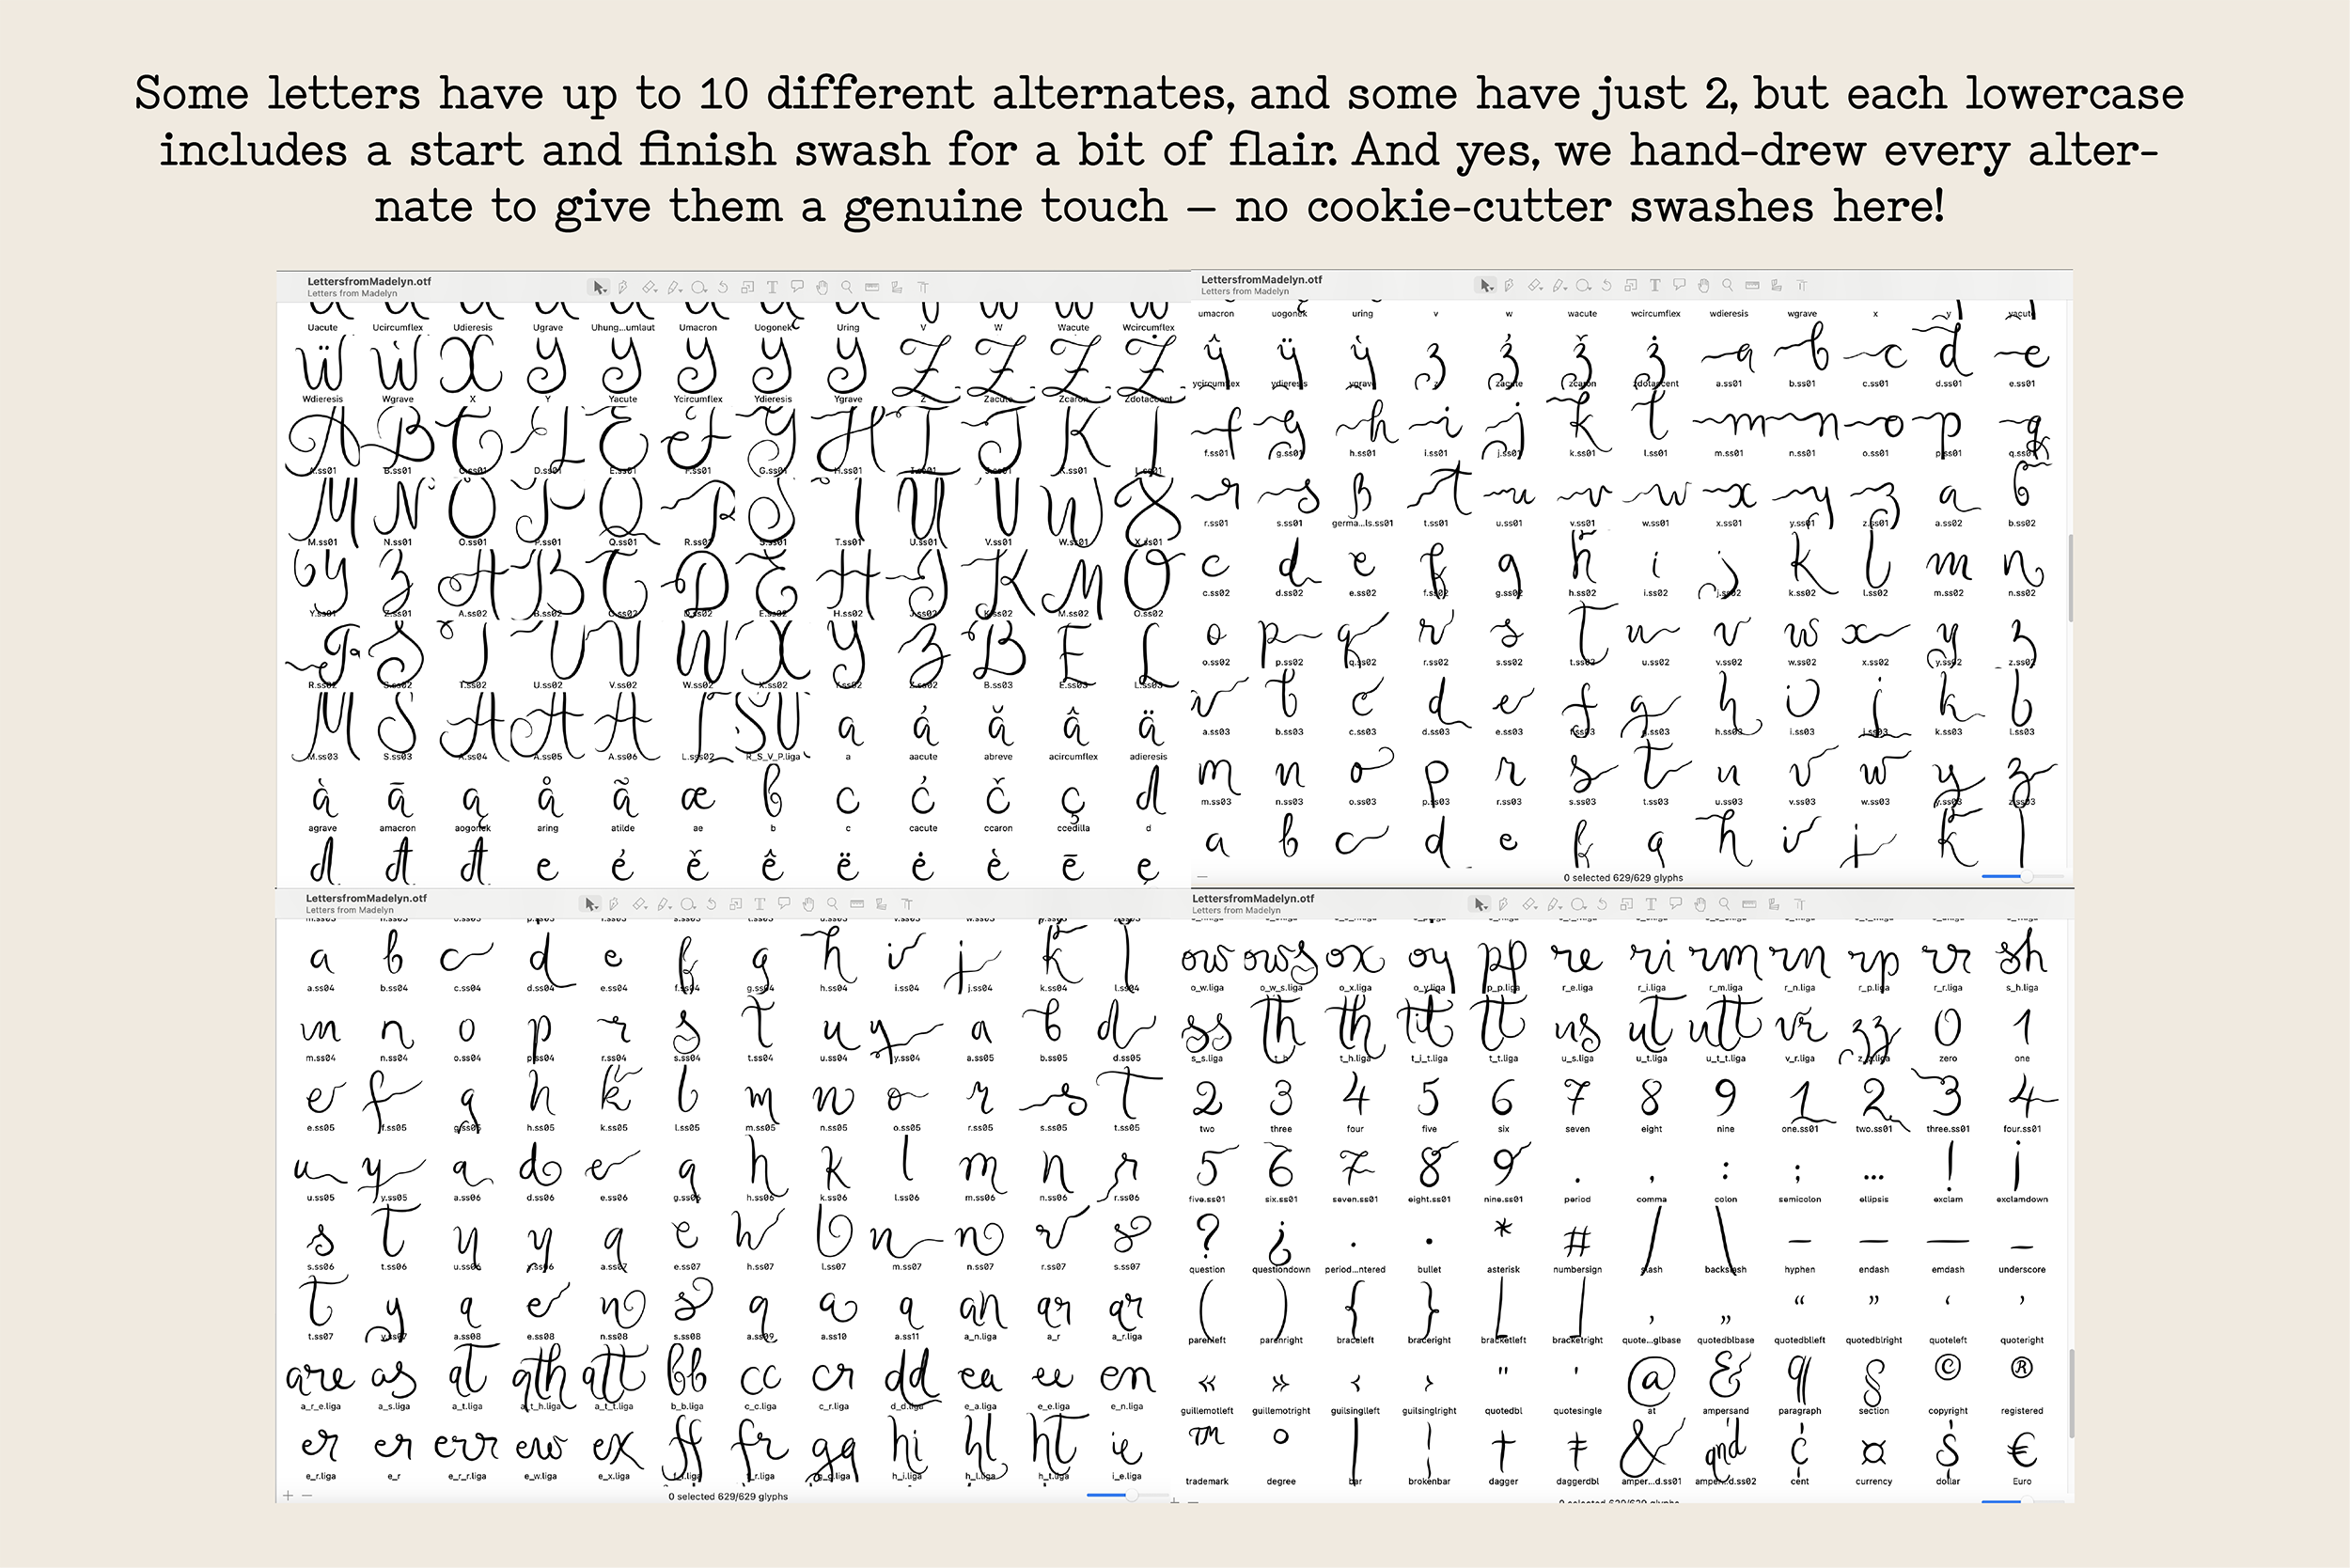 Some letters have up to 10 different alternates, and some have just 2, but each lowercase
includes a start and finish swash for a bit of flair. And yes, we hand-drew every alter-
nate to give them a genuine touch – no cookie-cutter swashes here!
LettersfromMadelyn.otf
Letters from Madelyn
Uacute Ucircumflex Udieresis Ugrave Uhung...umlaut Umacron Uogonek Uring V W Wacute Wcircumflex
Wdieresis Wgrave X Y Yacute Ycircumflex Ydieresis Ygrave Z Zacute Zcaron Zdotaccent
A.ss01 B.ss01 C.ss01 D.ss01 E.ss01 F.ss01 G.ss01 H.ss01 I.ss01 J.ss01 K.ss01 L.ss01
M.ss01 N.ss01 O.ss01 P.ss01 Q.ss01 R.ss01 S.ss01 T.ss01 U.ss01 V.ss01 W.ss01 X.ss01
Y.ss01 Z.ss01 A.ss02 B.ss02 C.ss02 D.ss02 E.ss02 H.ss02 J.ss02 K.ss02 M.ss02 O.ss02
R.ss02 S.ss02 T.ss02 U.ss02 V.ss02 W.ss02 X.ss02 Y.ss02 Z.ss02 B.ss03 E.ss03 L.ss03
M.ss03 S.ss03 A.ss04 A.ss05 A.ss06 L.ss02 R_S_V_P.liga a aacute abreve acircumflex adieresis
agrave amacron aogonek aring atilde ae b c cacute ccaron ccedilla d
LettersfromMadelyn.otf
Letters from Madelyn
umacron uogonek uring v w wacute wcircumflex wdieresis wgrave x y yacute
ycircumflex ydieresis ygrave z zacute zcaron zdotaccent a.ss01 b.ss01 c.ss01 d.ss01 e.ss01
f.ss01 g.ss01 h.ss01 i.ss01 j.ss01 k.ss01 l.ss01 m.ss01 n.ss01 o.ss01 p.ss01 q.ss01
r.ss01 s.ss01 germa...ls.ss01 t.ss01 u.ss01 v.ss01 w.ss01 x.ss01 y.ss01 z.ss01 a.ss02 b.ss02
c.ss02 d.ss02 e.ss02 f.ss02 g.ss02 h.ss02 i.ss02 j.ss02 k.ss02 l.ss02 m.ss02 n.ss02
o.ss02 p.ss02 q.ss02 r.ss02 s.ss02 t.ss02 u.ss02 v.ss02 w.ss02 x.ss02 y.ss02 z.ss02
a.ss03 b.ss03 c.ss03 d.ss03 e.ss03 f.ss03 g.ss03 h.ss03 i.ss03 j.ss03 k.ss03 l.ss03
m.ss03 n.ss03 o.ss03 p.ss03 r.ss03 s.ss03 t.ss03 u.ss03 v.ss03 w.ss03 y.ss03 z.ss03
0 selected 629/629 glyphs
LettersfromMadelyn.otf
Letters from Madelyn
a.ss04 b.ss04 c.ss04 d.ss04 e.ss04 f.ss04 g.ss04 h.ss04 i.ss04 j.ss04 k.ss04 l.ss04
m.ss04 n.ss04 o.ss04 p.ss04 r.ss04 s.ss04 t.ss04 u.ss04 y.ss04 a.ss05 b.ss05 d.ss05
e.ss05 f.ss05 g.ss05 h.ss05 k.ss05 l.ss05 m.ss05 n.ss05 o.ss05 r.ss05 s.ss05 t.ss05
u.ss05 y.ss05 a.ss06 d.ss06 e.ss06 g.ss06 h.ss06 k.ss06 l.ss06 m.ss06 n.ss06 r.ss06
s.ss06 t.ss06 u.ss06 y.ss06 a.ss07 e.ss07 h.ss07 l.ss07 m.ss07 n.ss07 r.ss07 s.ss07
t.ss07 y.ss07 a.ss08 e.ss08 n.ss08 s.ss08 a.ss09 a.ss10 a.ss11 a_n.liga a_r a_r.liga
a_r_e.liga a_s.liga a_t.liga a_t_h.liga a_t_t.liga b_b.liga c_c.liga c_r.liga d_d.liga e_a.liga e_e.liga e_n.liga
e_r.liga e_r e_r_r.liga e_w.liga e_x.liga f_f.liga f_r.liga g_g.liga h_i.liga h_l.liga h_t.liga i_e.liga
0 selected 629/629 glyphs
LettersfromMadelyn.otf
Letters from Madelyn
o_w.liga o_w_s.liga o_x.liga o_y.liga p_p.liga r_e.liga r_i.liga r_m.liga r_n.liga r_p.liga r_r.liga s_h.liga
s_s.liga t_h t_h.liga t_i_t.liga t_t.liga u_s.liga u_t.liga u_t_t.liga v_r.liga z_z.liga zero one
two three four five six seven eight nine one.ss01 two.ss01 three.ss01 four.ss01
five.ss01 six.ss01 seven.ss01 eight.ss01 nine.ss01 period comma colon semicolon ellipsis exclam exclamdown
question questiondown period...ntered bullet asterisk numbersign slash backslash hyphen endash emdash underscore
parenleft parenright braceleft braceright bracketleft bracketright quote...glbase quotedblbase quotedblleft quotedblright quoteleft quoteright
guillemotleft guillemotright guilsinglleft guilsinglright quotedbl quotesingle at ampersand paragraph section copyright registered
trademark degree bar brokenbar dagger daggerdbl amper...d.ss01 amper...d.ss02 cent currency dollar Euro
0 selected 629/629 glyphs